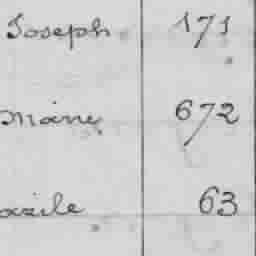 Joseph 171
Marie 672
azile 63